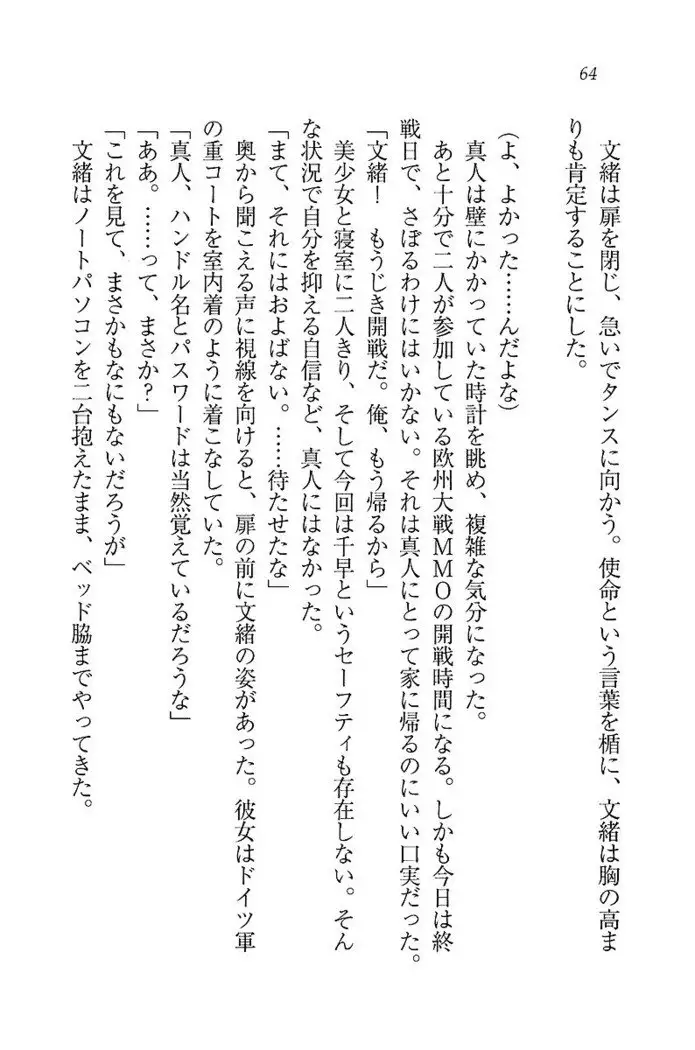 64
文緒は扉を閉じ、急いでタンスに向かう。使命という言葉を楯に、文緒は胸の高ま
りも肯定することにした。
(よ、よかった……んだよな)
真人は壁にかかっていた時計を眺め、複雑な気分になった。
あと十分で二人が参加している欧州大戦MMOの開戦時間になる。しかも今日は終
戦日で、さぼるわけにはいかない。それは真人にとって家に帰るのにいい口実だった。
「文緒!　もうじき開戦だ。俺、もう帰るから」
美少女と寝室に二人きり、そして今回は千早というセーフティも存在しない。そん
な状況で自分を抑える自信など、真人にはなかった。
「まて、それにはおよばない。……待たせたな」
奥から聞こえる声に視線を向けると、扉の前に文緒の姿があった。彼女はドイツ軍
の重コートを室内着のように着こなしていた。
「真人、ハンドル名とパスワードは当然覚えているだろうな」
「ああ。……って、まさか?」
「これを見て、まさかもなにもないだろうが」
文緒はノートパソコンを二台抱えたまま、ベッド脇までやってきた。